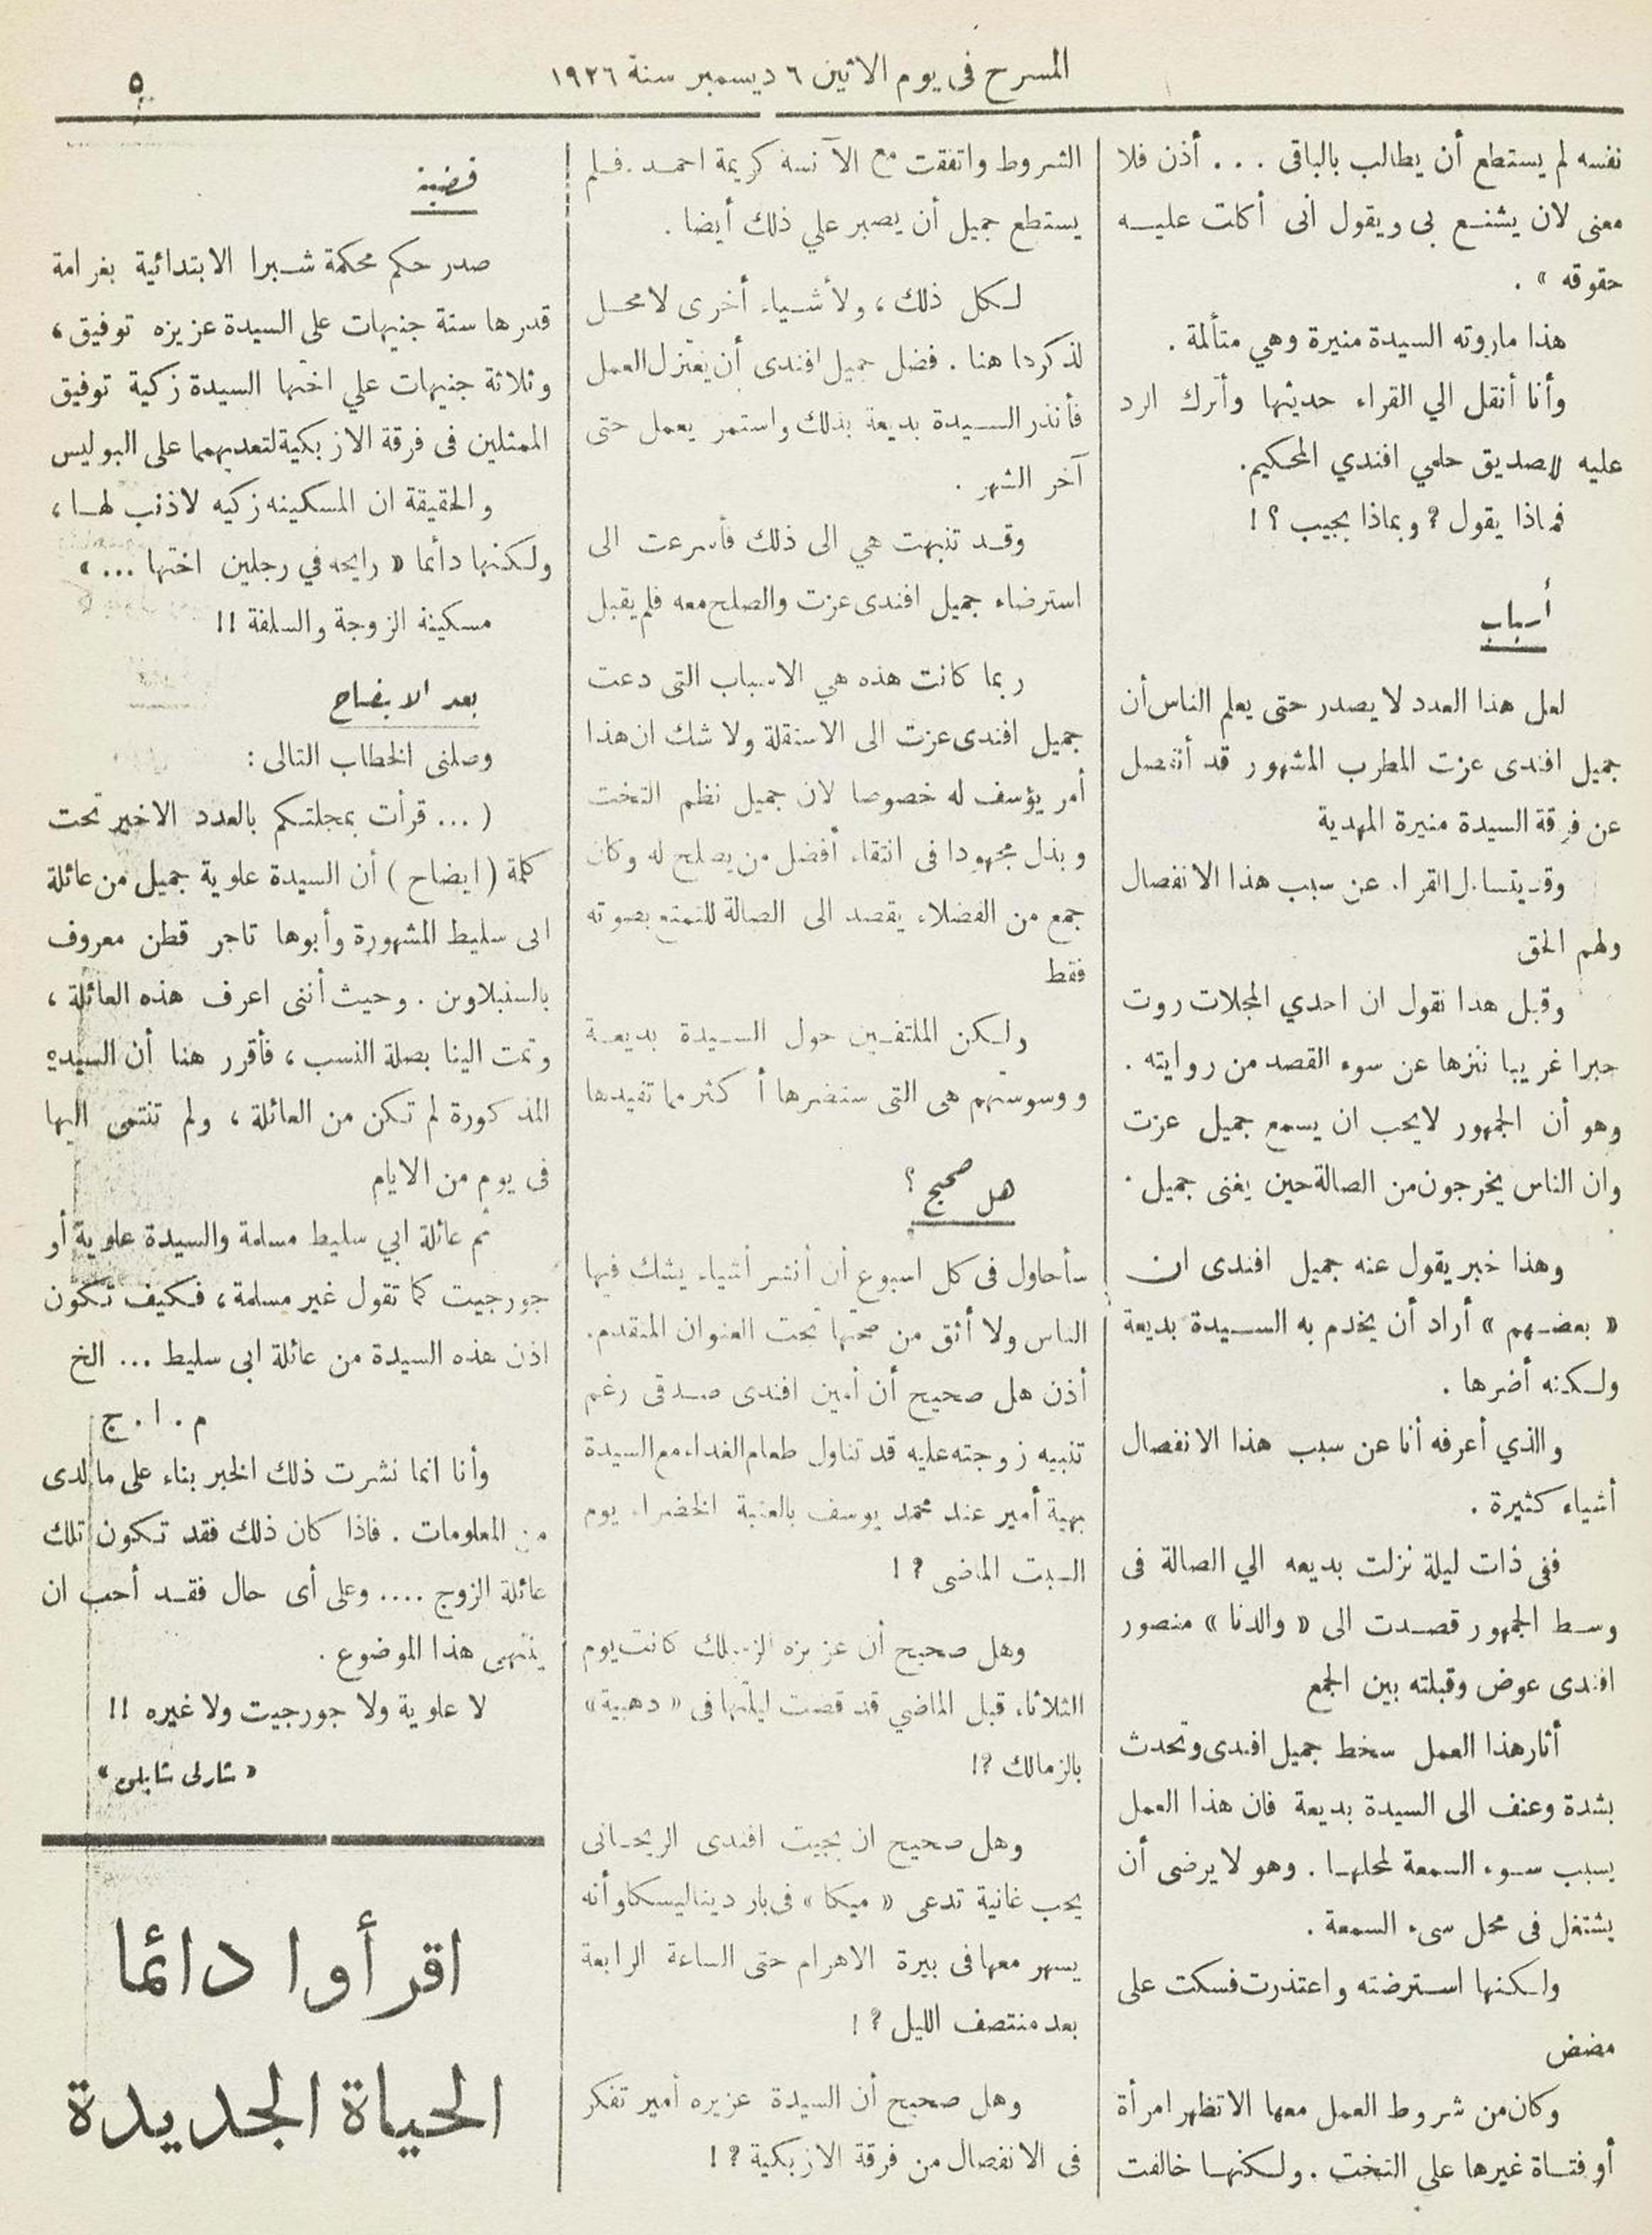 المسرح فى يوم الاثنين ٦ ديسمبر سنة ١٩٢٦
٥
نفسه لم يستطع أن يطالب بالباقى . . . أذن فلا
معنى لان يشنع بى ويقول انى أكلت عليه
حقوقه » .
هذا ماروته السيدة منيرة وهي متألمة .
وأنا أنقل الي القراء حديثها وأترك الرد
عليه للصديق حلمي افندي الحكيم.
فماذا يقول ؟ وبماذا يجيب ؟ !
أسباب
لعل هذا العدد لا يصدر حتى يعلم الناس أن
جميل افندى عزت المطرب المشهور قد أنفصل
عن فرقة السيدة منيرة المهدية
وقد يتساءل القراء عن سبب هذا الانفصال
ولهم الحق
وقبل هدا نقول ان احدي المجلات روت
خبرا غريبا ننزها عن سوء القصد من روايته .
وهو أن الجمهور لايحب ان يسمع جميل عزت
وان الناس يخرجون من الصالة حين يغنى جميل .
وهذا خبر يقول عنه جميل افندى ان
« بعضهم » أراد أن يخدم به السيدة بديعة
ولكنه أضرها .
والذي أعرفه أنا عن سبب هذا الانفصال
أشياء كثيرة .
ففى ذات ليلة نزلت بديعه الي الصالة فى
وسط الجمهور قصدت الى « والدنا » منصور
افندى عوض وقبلته بين الجمع
أثار هذا العمل سخط جميل افندى وتحدث
بشدة وعنف الى السيدة بديعة فان هذا العمل
يسبب سوء السمعة لمحلها . وهو لا يرضى أن
يشتغل فى محل سىء السمعة .
ولكنها استرضته واعتذرت فسكت على
مضض
وكان من شروط العمل معها الا تظهر امرأة
أو فتاة غيرها علي التخت . ولكنها خالفت
الشروط واتفقت مع الآنسة كريمة احمد . فلم
يستطع جميل أن يصبر علي ذلك أيضا .
لكل ذلك ، ولأشياء أخرى لا محل
لذكرها هنا . فضل جميل افندى أن يعتزل العمل
فأنذر السيدة بديعة بذلك واستمر يعمل حتى
آخر الشهر .
وقد تنبهت هي الى ذلك فأسرعت الى
استرضاء جميل افندى عزت والصلح معه فلم يقبل
ربما كانت هذه هي الاسباب التى دعت
جميل افندى عزت الى الاستقلة ولا شك ان هذا
أمر يؤسف له خصوصا لان جميل نظم التخت
وبذل مجهودا فى انتقاء أفضل من يصلح له وكان
جمع من الفضلاء يقصد الى الصالة للتمتع بصوته
فقط
ولكن الملتفين حول السيدة بديعة
ووسوستهم هى التى ستضرها أكثر مما تفيدها
هل صحيح ؟
سأحاول فى كل اسبوع أن أنشر أشياء يشك فيها
الناس ولا أثق من صحتها تحت العنوان المتقدم.
أذن هل صحيح أن أمين افندى صدقى رغم
تنبيه زوجته عليه قد تناول طعام الغداء مع السيدة
بهية أمير عند محمد يوسف بالعتبة الخضراء يوم
السبت الماضى ؟ !
وهل صحيح أن عزيزه الزمبلك كانت يوم
الثلاثاء قبل الماضي قد قضت ليلتها فى « دهبية »
بالزمالك ؟!
وهل صحيح ان نجيب افندى الريحانى
يحب غانية تدعى « ميكا » فى بار ديناليسكا وأنه
يسهر معها فى بيرة الاهرام حتى الساعة الرابعة
بعد منتصف الليل ؟ !
وهل صحيح أن السيدة عزيزه أمير تفكر
فى الانفصال من فرقة الازبكية ؟ !
قضية
صدر حكم محكمة شبرا الابتدائية بغرامة
قدرها ستة جنيهات على السيدة عزيزه توفيق ،
وثلاثة جنيهات علي اختها السيدة زكية توفيق
الممثلين فى فرقة الازبكية لتعديهما على البوليس
والحقيقة ان المسكينه زكيه لاذنب لها ،
ولكنها دأئما « رايحه في رجلين اختها ... »
مسكينة الزوجة والسلفة !!
بعد الايضاح
وصلنى الخطاب التالى :
( ... قرأت بمجلتكم بالعدد الاخير تحت
كلمة ( ايضاح ) أن السيدة علوية جميل من عائلة
ابى سليط المشهورة وأبوها تاجر قطن معروف
بالسنبلاوين . وحيث أننى اعرف هذه العائلة ،
وتمت الينا بصلة النسب ، فأقرر هنا أن السيده
المذكورة لم تكن من العائلة ، ولم تنتمى اليها
فى يوم من الايام
ثم عائلة ابي سليط مسلمة والسيدة علوية أو
جورجيت كما تقول غير مسلمة ، فكيف تكون
اذن هذه السيدة من عائلة ابى سليط ... الخ
م . ا . ج
وأنا انما نشرت ذلك الخبر بناء على مالدى
من المعلومات . فاذا كان ذلك فقد تكون تلك
عائلة الزوج .... وعلى أى حال فقد أحب ان
ينتهى هذا الموضوع .
لا علوية ولا جورجيت ولا غيره !!
« شارلى شابلن »
اقرأوا دائما
الحياة الجديدة